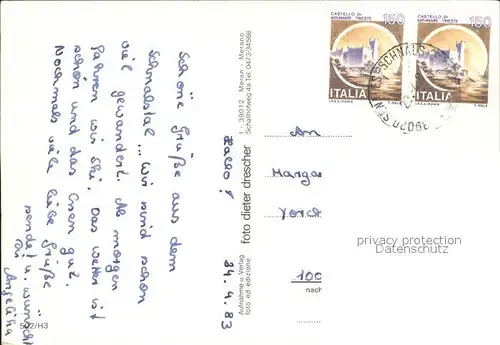 Hallo! 24.4.83
Schöne Grüße aus dem
Schnalstal ... wir sind schon
viel gewandert. Ab morgen
fahren wir Ski. Das Wetter ist
schön und das Essen gut.
Nochmals viele liebe Grüße
sendet u. wünscht
Dir
Angelika
502/H3
Aufnahme u. Verlag
foto ed edizione
foto dieter drescher
I - 39012 Meran - Merano
Schallhofweg 4a Tel. 0473-34566
CASTELLO DI
MIRAMARE TRIESTE
150
ITALIA
I.P.Z.S. ROMA
CASTELLO DI
MIRAMARE TRIESTE
150
ITALIA
I.P.Z.S. ROMA
39020
SCHNALS
An
Margar
Yorck
100
nach
privacy protection
Datenschutz